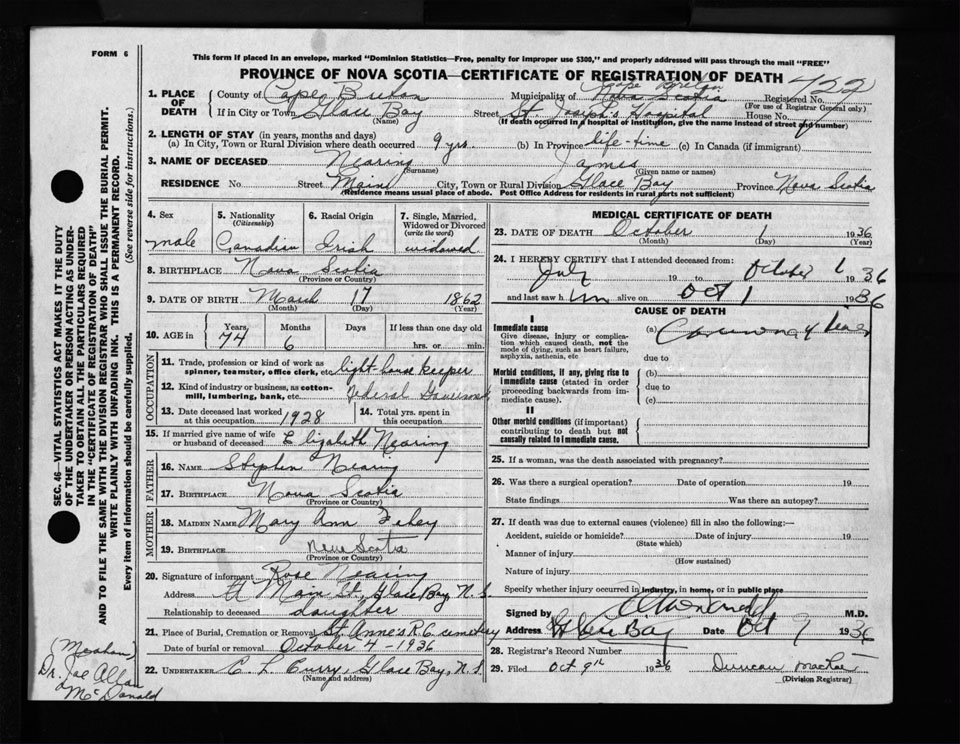 FORM 6
This form if placed in an envelope, marked "Dominion Statistics—Free, penalty for improper use $300," and properly addressed will pass through the mail "FREE"
PROVINCE OF NOVA SCOTIA—CERTIFICATE OF REGISTRATION OF DEATH
1. PLACE OF DEATH
County of Cape Breton Municipality of Cape Breton Nova Scotia Registered No. 722
(For use of Registrar General only)
If in City or Town Glace Bay Street St. Joseph's Hospital House No.
(Name) (If death occurred in a hospital or institution, give the name instead of street and number)
2. LENGTH OF STAY (in years, months and days)
(a) In City, Town or Rural Division where death occurred 9 yrs. (b) In Province life-time (c) In Canada (if immigrant)
3. NAME OF DECEASED Nearing James
(Surname) (Given name or names)
RESIDENCE No. Street Main City, Town or Rural Division Glace Bay Province Nova Scotia
(Residence means usual place of abode. Post Office Address for residents in rural parts not sufficient)
4. Sex male
5. Nationality (Citizenship) Canadian
6. Racial Origin Irish
7. Single, Married, Widowed or Divorced (write the word) widowed
8. BIRTHPLACE Nova Scotia
(Province or Country)
9. DATE OF BIRTH March 17 1862
(Month) (Day) (Year)
10. AGE in Years 74 Months 6 Days If less than one day old hrs. or min.
OCCUPATION
11. Trade, profession or kind of work as spinner, teamster, office clerk, etc. light-house keeper
12. Kind of industry or business, as cotton-mill, lumbering, bank, etc. Federal Government
13. Date deceased last worked at this occupation 1928
14. Total yrs. spent in this occupation
15. If married give name of wife or husband of deceased Elizabeth Nearing
FATHER
16. NAME Stephen Nearing
17. BIRTHPLACE Nova Scotia
(Province or Country)
MOTHER
18. MAIDEN NAME Mary Ann Fahey
19. BIRTHPLACE Nova Scotia
(Province or Country)
20. Signature of informant Rose Nearing
Address Main St., Glace Bay, N.S.
Relationship to deceased daughter
21. Place of Burial, Cremation or Removal St. Anne's R.C. cemetery
Date of burial or removal October 4 - 1936
22. UNDERTAKER C. L. Curry, Glace Bay, N.S.
(Name and address)
MEDICAL CERTIFICATE OF DEATH
23. DATE OF DEATH October 1 1936
(Month) (Day) (Year)
24. I HEREBY CERTIFY that I attended deceased from:
July 19 to October 1936
and last saw him alive on Oct 1 1936
CAUSE OF DEATH
I
Immediate cause
Give disease, injury or complication which caused death, not the mode of dying, such as heart failure, asphyxia, asthenia, etc
(a)
due to
Morbid conditions, if any, giving rise to immediate cause (stated in order proceeding backwards from immediate cause).
(b)
due to
(c)
II
Other morbid conditions (if important) contributing to death but not causally related to immediate cause.
25. If a woman, was the death associated with pregnancy?
26. Was there a surgical operation? Date of operation 19
State findings Was there an autopsy?
27. If death was due to external causes (violence) fill in also the following:—
Accident, suicide or homicide? Date of injury 19
(State which)
Manner of injury
(How sustained)
Nature of injury
Specify whether injury occurred in industry, in home, or in public place
Signed by M.D.
Address Glace Bay Date Oct 9 1936
28. Registrar's Record Number
29. Filed Oct 9th 1936 Duncan MacRae
(Division Registrar)
SEC. 46—VITAL STATISTICS ACT MAKES IT THE DUTY
OF THE UNDERTAKER OR PERSON ACTING AS UNDER-
TAKER TO OBTAIN ALL THE PARTICULARS REQUIRED
IN THE "CERTIFICATE OF REGISTRATION OF DEATH"
AND TO FILE THE SAME WITH THE DIVISION REGISTRAR WHO SHALL ISSUE THE BURIAL PERMIT.
WRITE PLAINLY WITH UNFADING INK. THIS IS A PERMANENT RECORD.
Every item of information should be carefully supplied. (See reverse side for instructions.)
Dr. Joe Allan
McDonald